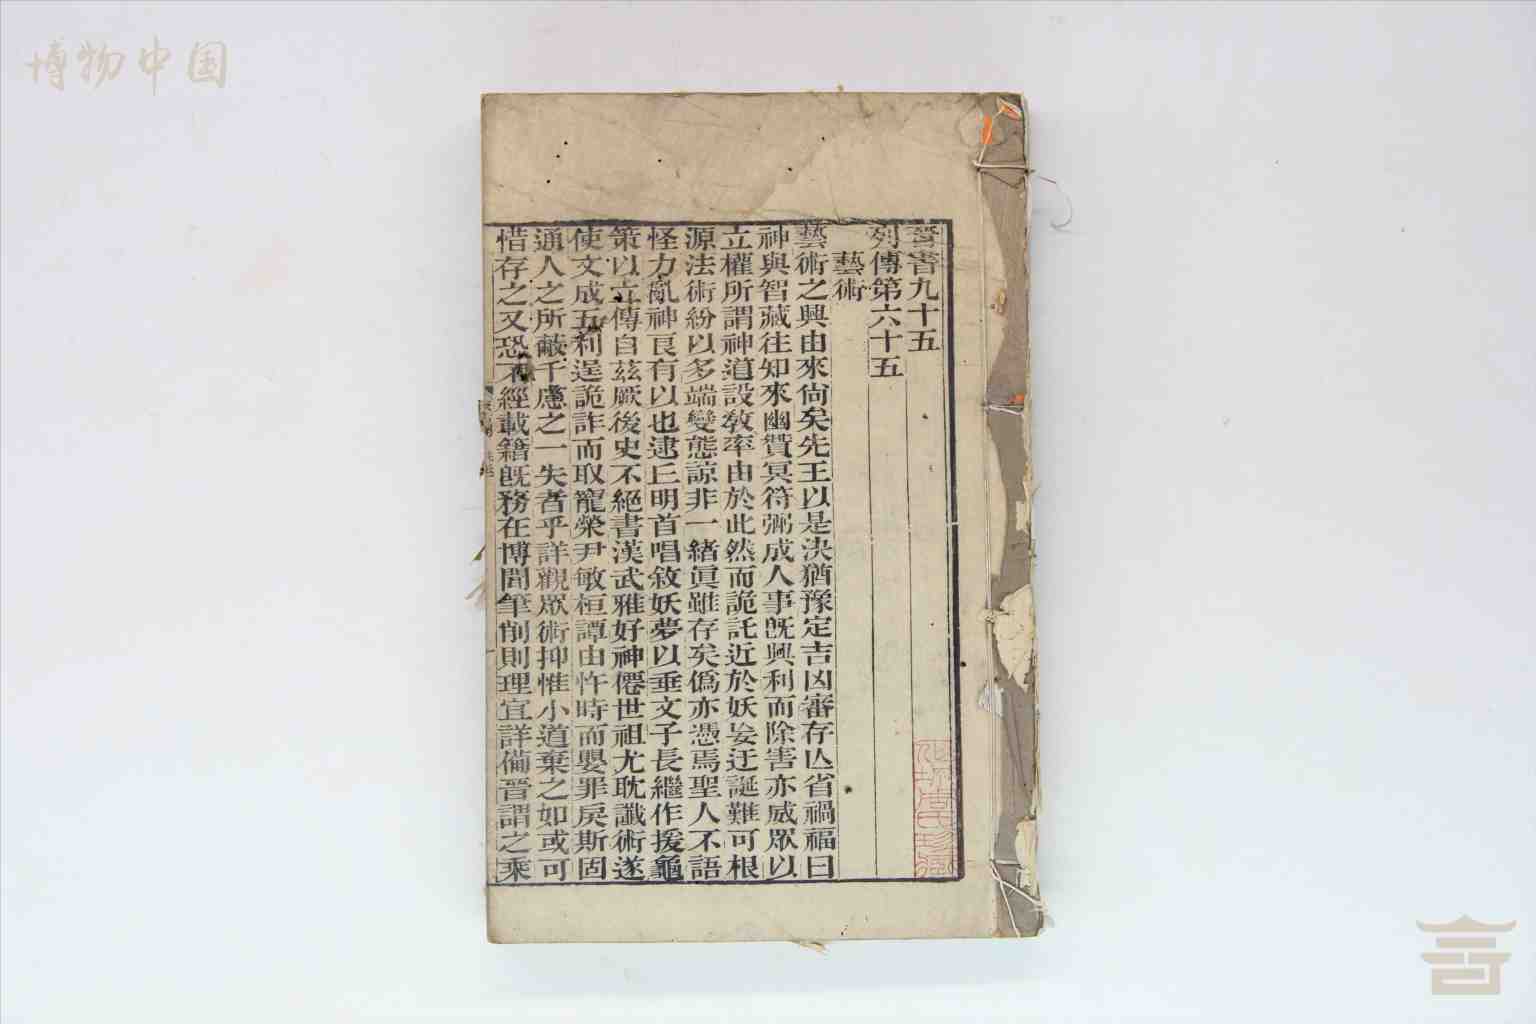 博物中国
晉書九十五
列傳第六十五
藝術
藝術之興由來尙矣先王以是決猶豫定吉凶審存亾省禍福曰
神與智藏往知來幽贊冥符弼成人事旣興利而除害亦威眾以
立權所謂神道設敎率由於此然而詭託近於妖妄迂誕難可根
源法術紛以多端變態諒非一緒眞雖存矣僞亦憑焉聖人不語
怪力亂神良有以也逮丘明首唱敘妖夢以垂文子長繼作援龜
策以立傳自茲厥後史不絕書漢武雅好神僊世祖尤耽讖術遂
使文成五利逞詭詐而取寵榮尹敏桓譚由忤時而嬰罪戾斯固
通人之所蔽千慮之一失者乎詳觀眾術抑惟小道棄之如或可
惜存之又恐不經載籍旣務在博聞筆削則理宜詳備晉謂之乘